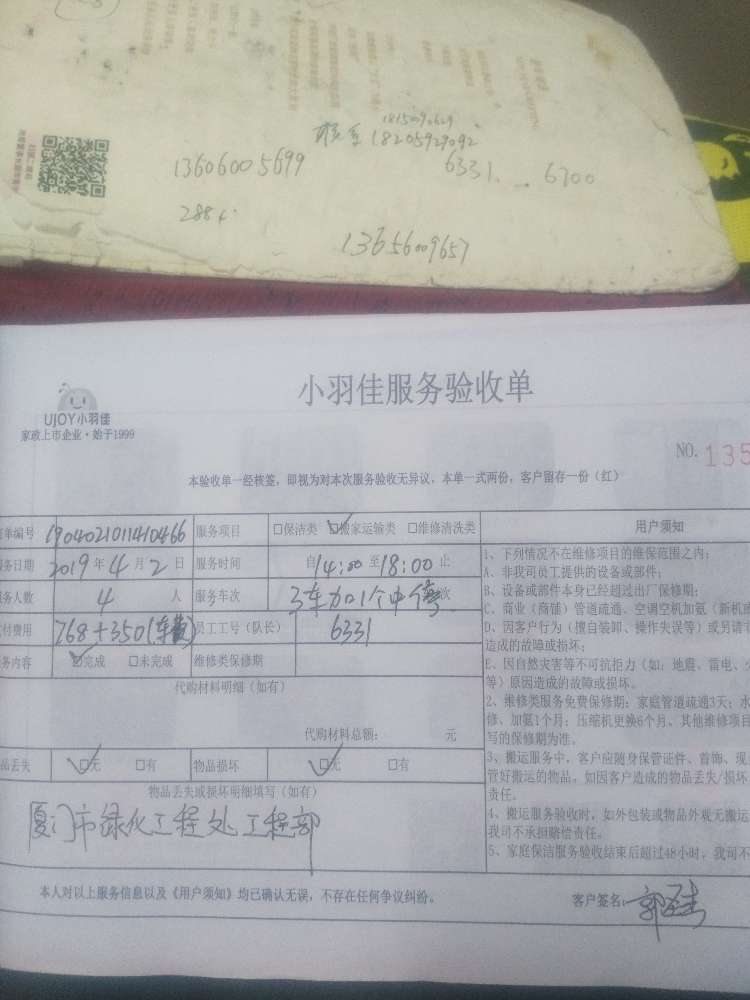 1815090629
18205929092
13606005699
6331
6700
288
13656009657
小羽佳服务验收单
UJOY小羽佳
家政上市企业·始于1999
NO.135
本验收单一经核签，即视为对本次服务验收无异议，本单一式两份，客户留存一份（红）
单编号 1904021011410466 服务项目 □保洁类 □搬家运输类 □维修清洗类
务日期 2019年4月2日 服务时间 自14:00至18:00止
务人数 4人 服务车次 3车加1个中 次
付费用 768+350(车费) 员工工号（队长） 6331
务内容 □完成 □未完成 维修类保修期
代购材料明细（如有）
代购材料总额： 元
品丢失 □无 □有 物品损坏 □无 □有
物品丢失或损坏明细填写（如有）
厦门市绿化工程处工程部
用户须知
1、下列情况不在维修项目的维保范围之内：
A、非我司员工提供的设备或部件；
B、设备或部件本身已经超过出厂保修期；
C、商业（商铺）管道疏通、空调空机加氨（新机或
D、因客户行为（擅自装卸、操作失误等）或另请
造成的故障或损坏；
E、因自然灾害等不可抗拒力（如：地震、雷电、
等）原因造成的故障或损坏。
2、维修类服务免费保修期：家庭管道疏通3天；水
修、加氨1个月；压缩机更换6个月、其他维修项目
写的保修期为准。
3、搬运服务中，客户应随身保管证件、首饰、现
管好搬运的物品，如因客户造成的物品丢失/损坏
责任。
4、搬运服务验收时，如外包装或物品外观无搬运
我司不承担赔偿责任。
5、家庭保洁服务验收结束后超过48小时，我司不
本人对以上服务信息以及《用户须知》均已确认无误，不存在任何争议纠纷。
客户签名：